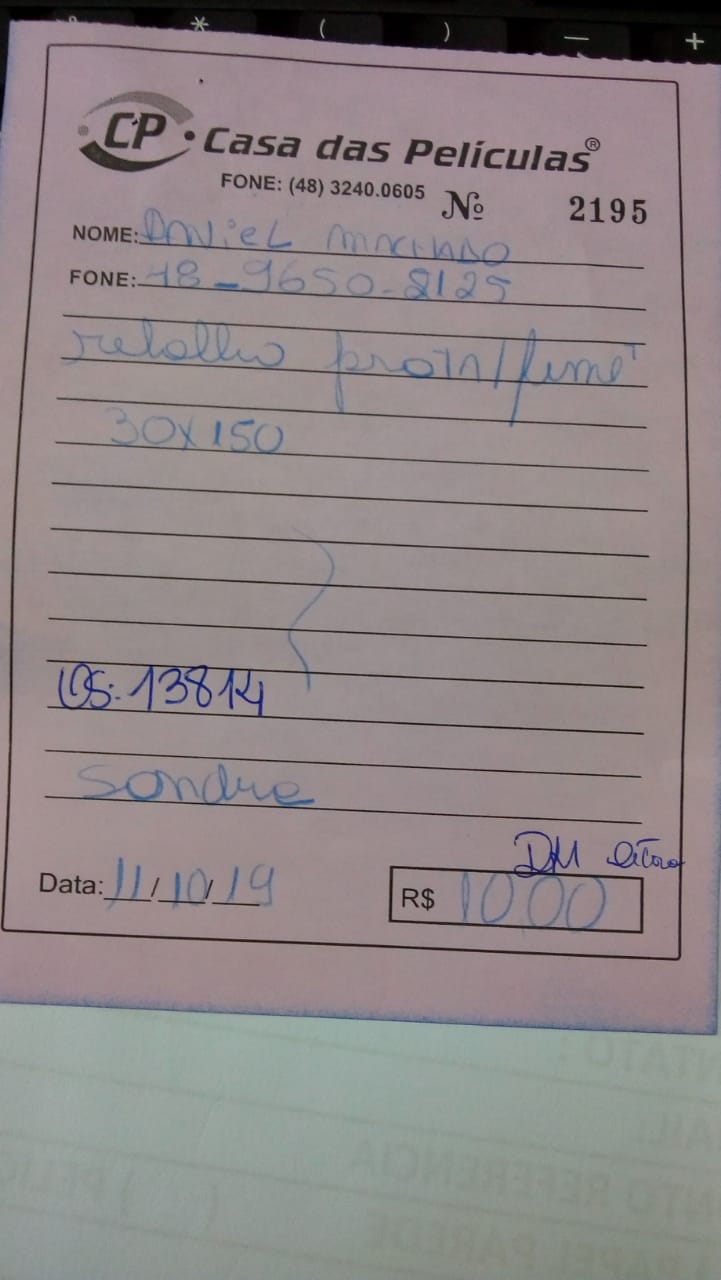 * ( ) — +
CP Casa das Películas®
FONE: (48) 3240.0605 Nº 2195
NOME: DANIEL MACHADO
FONE: 48-9650-8125
retalho prata/fumê
30X150
OS: 13814
Sandra
DM
Data: 11/10/19 R$ 10,00